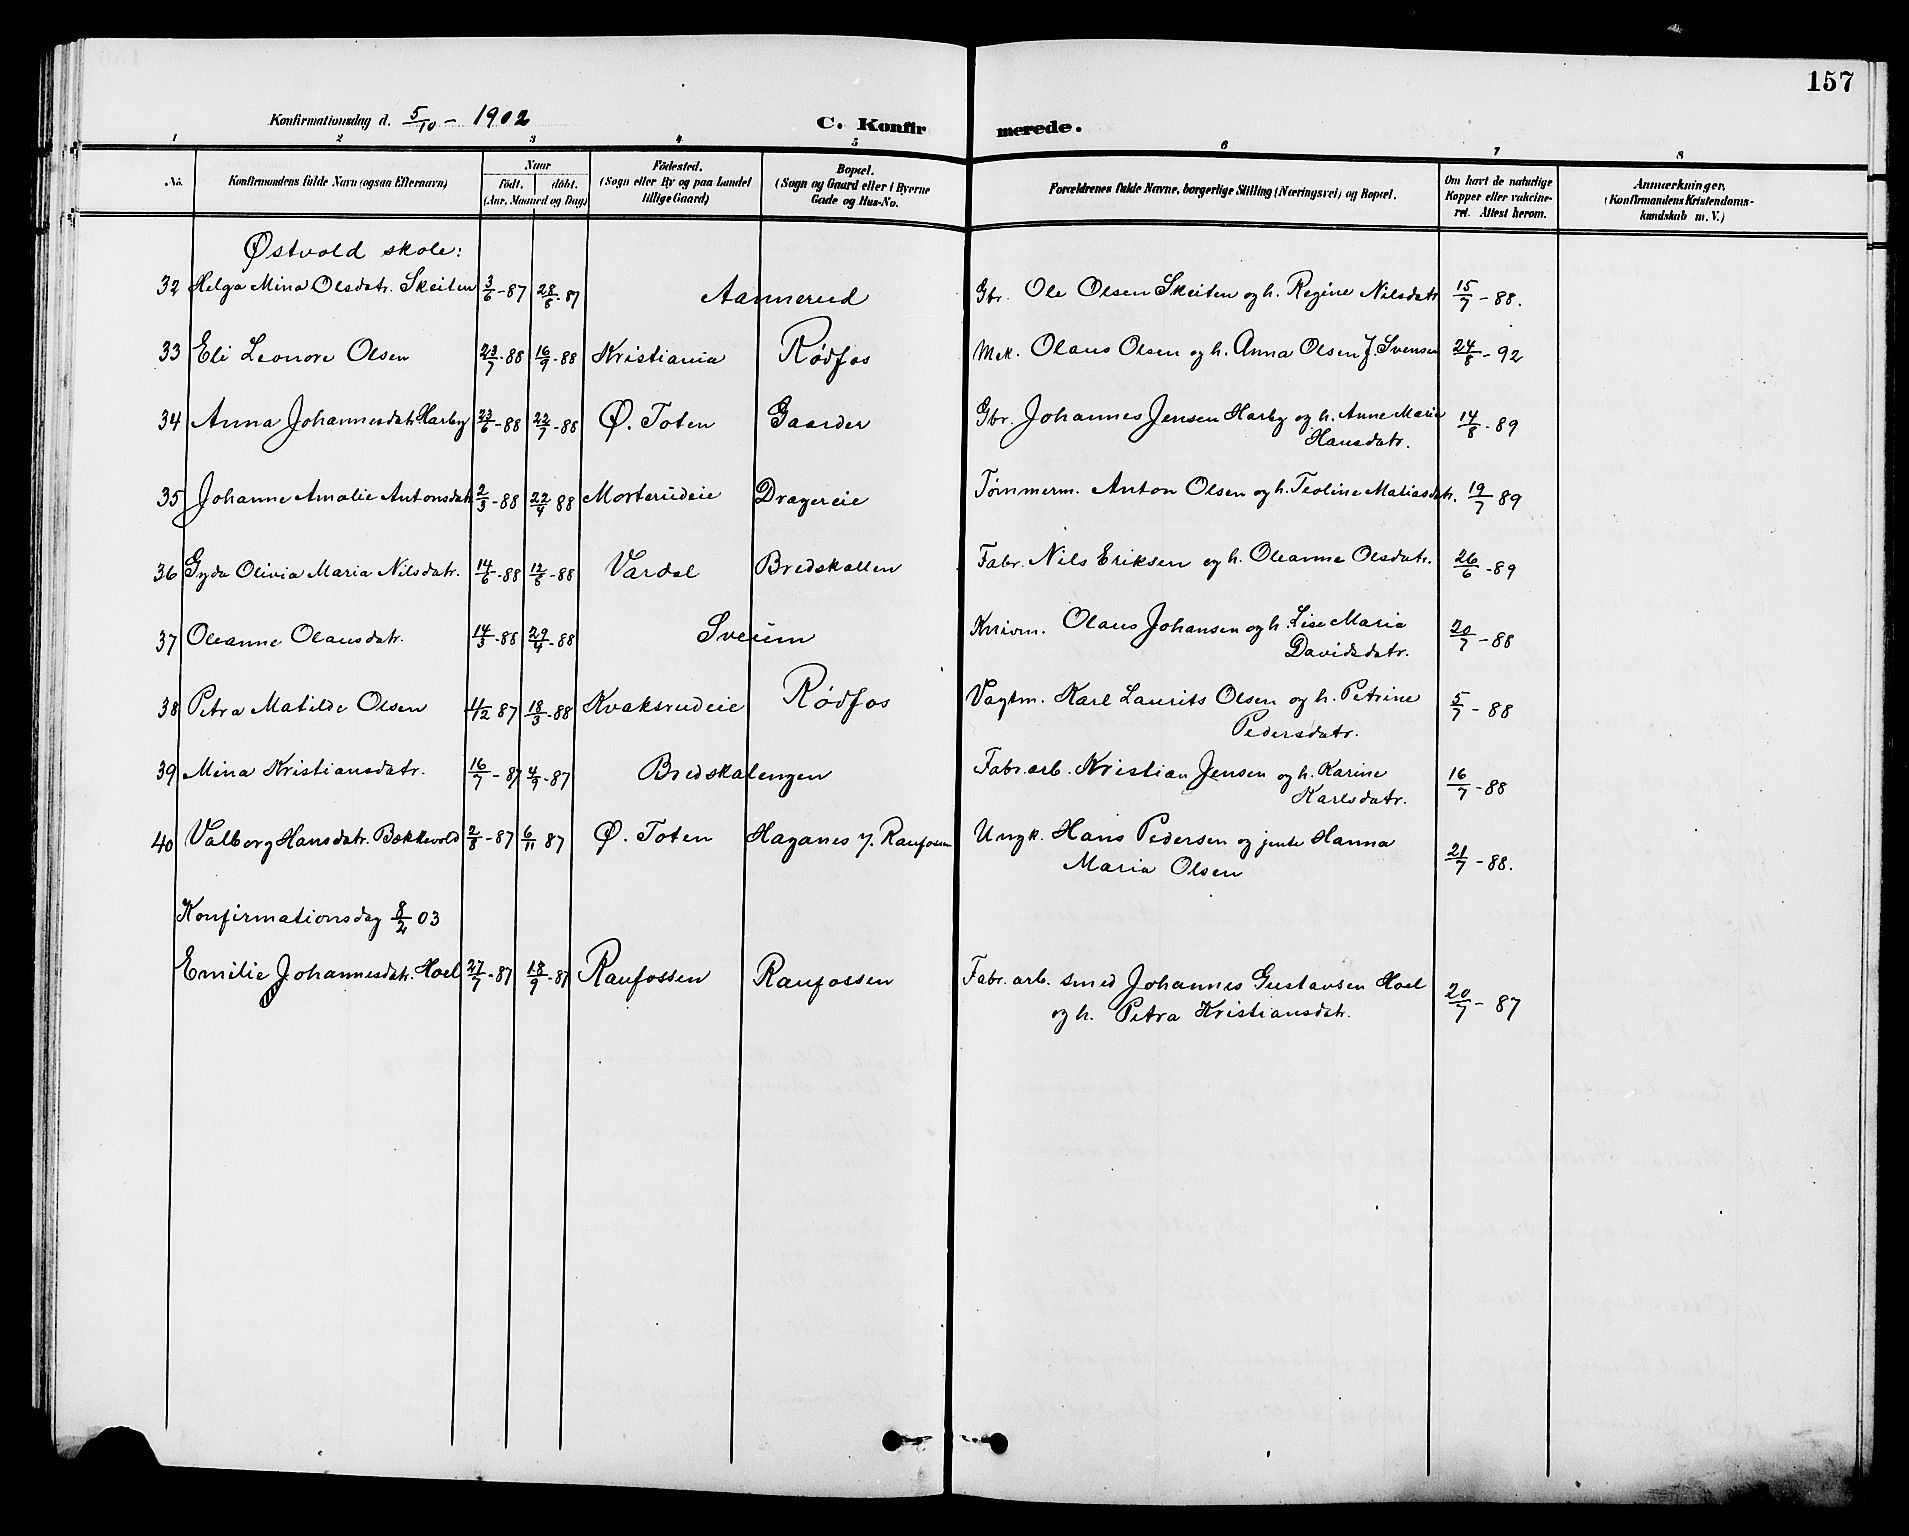 157
Konfirmationsdag d. 5/10 - 1902
C. Konfirmerede.
1 2 3 4 5 6 7 8
No. Konfirmandens fulde Navn (ogsaa Efternavn) Naar født. døbt. (Aar, Maaned og Dag) Fødested. (Sogn eller By og paa Landet tillige Gaard) Bopæl. (Sogn og Gaard eller i Byerne Gade og Hus-No. Forældrenes fulde Navne, borgerlige Stilling (Næringsvei) og Bopæl. Om havt de naturlige Kopper eller vaccineret. Attest herom. Anmærkninger. (Konfirmandens Kristendomskundskab m. V.)
Østvold skole:
32 Helga Mina Olsdatr. Skeiten 3/6-87 28/8-87 Aannerud Gbr. Ole Olsen Skeiten og h. Regine Nilsdatr 15/7-88.
33 Eli Leonore Olsen 23/7-88 16/9-88 Kristiania Rødfos Mek. Olaus Olsen og h. Anna Olsen f. Svensen 24/8-92
34 Anna Johannesdatr Harby 23/6-88 22/7-88 Ø. Toten Gaarder Gbr. Johannes Jensen Harby og h. Anne Marie Hansdatr. 14/8-89
35 Johanne Amalie Antonsdatr 2/3-88 22/4 88 Morterudeie Dragereie Tømmerm. Anton Olsen og h. Teoline Matiasdatr. 19/7 89
36 Gyda Olivia Maria Nilsdatr. 14/6-88 12/8-88 Vardal Bredskallen Fabr. Nils Eriksen og h. Oleanne Olsdatr. 26/6-89
37 Oleanne Olausdatr. 14/3-88 29/4-88 Sveum Olaus Johansen og h. Lise Maria Davidsdatr. 20/7-88
38 Petra Matilde Olsen 4/12 87 18/3-88 Kvaksrudeie Rødfos Vagtm. Karl Laurits Olsen og h. Petrine Pedersdatr. 5/7-88
39 Mina Kristiansdatr. 16/7-87 4/9-87 Bredskalengen Fabr.arb. Kristian Jensen og h. Karine Karlsdatr. 16/7-88
40 Valborg Hansdatr. Bækkevold 2/8-87 6/11 87 Ø. Toten Haganes p. Raufossen Ungk. Hans Pedersen og jente Hanna Maria Olsen 21/7-88.
Konfirmationsdag 8/2 03
Emilie Johannesdatr. Hoel 27/7-87 18/9-87 Raufossen Raufossen Fabr.arb. smed Johannes Gustavsen Hoel og h. Petra Kristiansdatr. 20/7-87